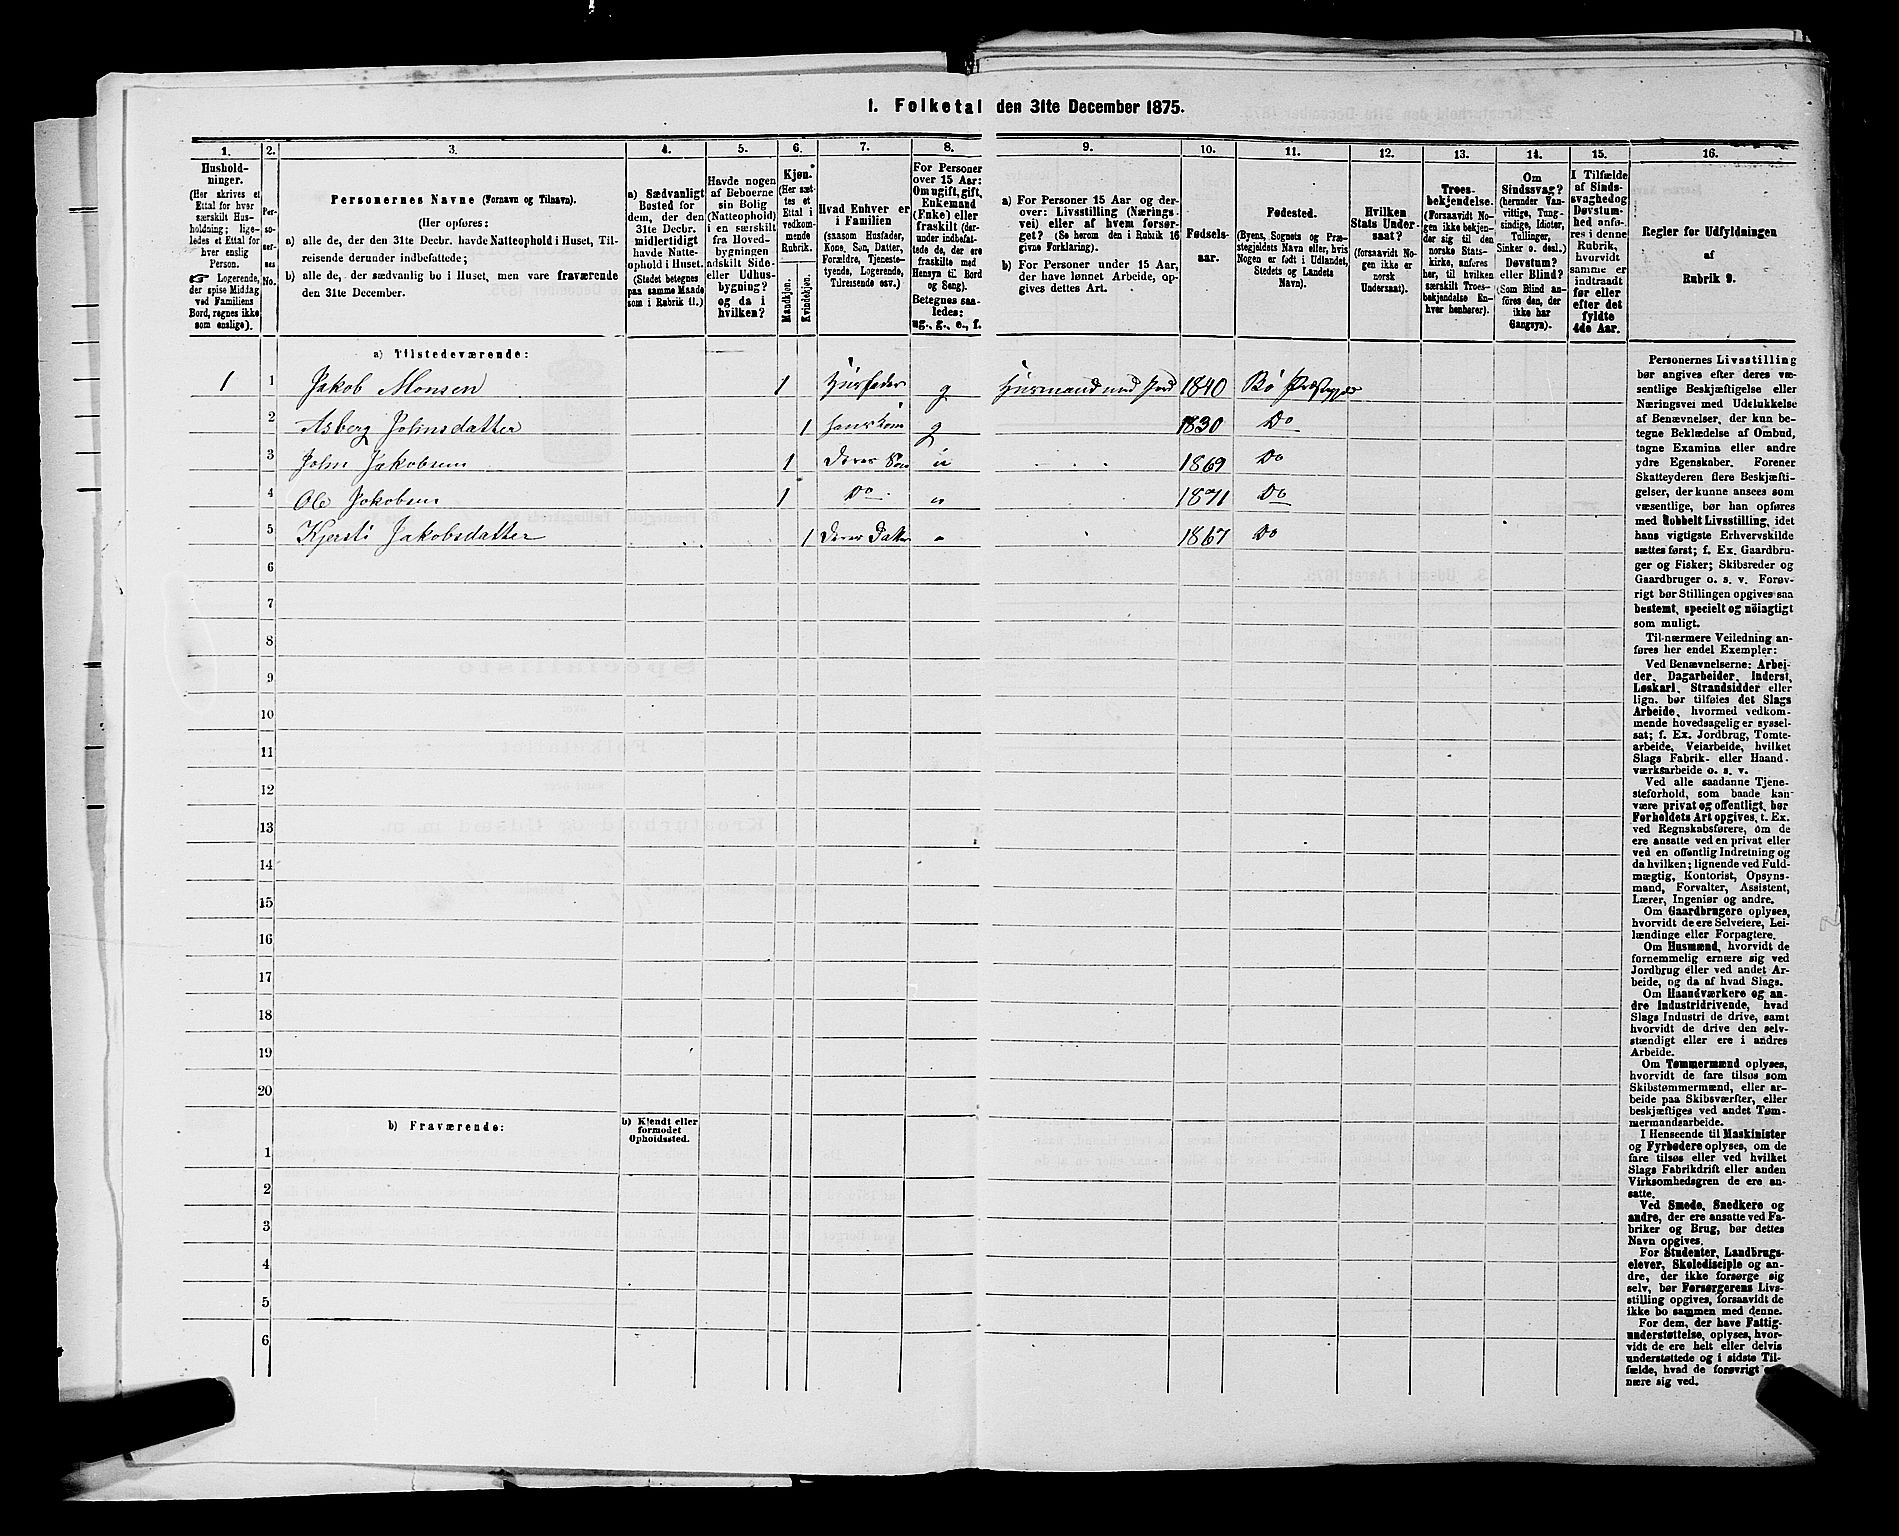 1. Folketal den 31te December 1875.
1.
2.
3.
4.
5.
6.
7.
8.
9.
10.
11.
12.
13.
14.
15.
16.
Hushold-
ninger.
(Her skrives et
Ettal for hver
særskilt Hus-
holdning; lige-
ledes et Ettal for
hver enslig
Person.
☞ Logerende,
der spise Middag
ved Familiens
Bord, regnes ikke
som enslige).
Per-
so-
ner-
nes
No.
Personernes Navne (Fornavn og Tilnavn).
(Her opføres:
a) alle de, der den 31te Decbr. havde Natteophold i Huset, Til-
reisende derunder indbefattede;
b) alle de, der sædvanlig bo i Huset, men vare fraværende
den 31te December.
a) Sædvanligt
Bosted for
dem, der den
31te Decbr.
midlertidigt
havde Natte-
ophold i Huset.
(Stedet betegnes
paa samme Maade
som i Rubrik 11.)
Havde nogen
af Beboerne
sin Bolig
(Natteophold)
i en særskilt
fra Hoved-
bygningen
adskilt Side-
eller Udhus-
bygning?
og da i
hvilken?
Kjøn.
(Her sæt-
tes et
Ettal i
vedkom-
mende
Rubrik.
Mandkjøn.
Kvindekjøn.
Hvad Enhver er
i Familien
(saasom Husfader,
Kone, Søn, Datter,
Forældre, Tjeneste-
tyende, Logerende,
Tilreisende osv.)
For Personer
over 15 Aar:
Om ugift, gift,
Enkemand
(Enke) eller
fraskilt (der-
under indbefat-
tede de, der ere
fraskilte med
Hensyn til Bord
og Seng).
Betegnes saa-
ledes:
ug., g., e., f.
a) For Personer 15 Aar og der-
over: Livsstilling (Nærings-
vei) eller af hvem forsør-
get? (Se herom den i Rubrik 16
givne Forklaring).
b) For Personer under 15 Aar,
der have lønnet Arbeide, op-
gives dettes Art.
Fødsels-
aar.
Fødested.
(Byens, Sognets og Præ-
stegjeldets Navn eller, hvis
Nogen er født i Udlandet,
Stedets og Landets
Navn).
Hvilken
Stats Under-
saat?
(forsaavidt No-
gen ikke er
norsk
Undersaat).
Troes-
bekjendelse.
(Forsaavidt No-
gen ikke bekjen-
der sig til den
norske Stats-
kirke, anføres
her, til hvilken
særskilt Troes-
bekjendelse En-
hver henhører).
Om
Sindssvag?
(herunder Van-
vittige, Tung-
sindige, Idioter,
Tullinger,
Sinker o. desl.)
Døvstum?
eller Blind?
(Som Blind an-
føres den, der
ikke har
Gangsyn).
I Tilfælde
af Sinds-
svaghed og
Døvstum-
hed anfø-
res i denne
Rubrik,
hvorvidt
samme er
indtraadt
før eller
efter det
fyldte
4de Aar.
Regler for Udfyldningen
af
Rubrik 9.
a) Tilstedeværende:
1 1 Jakob Monsen 1 Husfader g Husmand med Jord 1840 Bø Præstegjæ
2 Asberg Johnsdatter 1 hans kone g 1830 Do
3 John Jakobsen 1 Deres Søn u 1869 Do
4 Ole Jakobsen 1 Do 1871 Do
5 Kjersti Jakobsdatter 1 Deres Datter 1867 Do
6
7
8
9
10
11
12
13
14
15
16
17
18
19
20
b) Fraværende:
b) Kjendt eller
formodet
Opholdssted.
1
2
3
4
5
6
Personernes Livsstilling
bør angives efter deres væ-
sentlige Beskjæftigelse eller
Næringsvei med Udelukkelse
af Benævnelser, der kun be-
tegne Beklædelse af Ombud,
tagne Examina eller andre
ydre Egenskaber. Forener
Skatteyderen flere Beskjæfti-
gelser, der kunne ansees som
væsentlige, bør han opføres
med dobbelt Livsstilling, idet
hans vigtigste Erhvervskilde
sættes først; f. Ex. Gaardbru-
ger og Fisker; Skibsreder og
Gaardbruger o. s. v. Forøv-
rigt bør Stillingen opgives saa
bestemt, specielt og nöiagtigt
som muligt.
Til nærmere Veiledning an-
føres her endel Exempler:
Ved Benævnelserne: Arbei-
der, Dagarbeider, Inderst,
Løskarl, Strandsidder eller
lign. bør tilføies det Slags
Arbeide, hvormed vedkom-
mende hovedsagelig er syssel-
sat; f. Ex. Jordbrug, Tomte-
arbeide, Veiarbeide, hvilket
Slags Fabrik- eller Haand-
værksarbeide o. s. v.
Ved alle saadanne Tjene-
steforhold, som baade kan
være privat og offentligt, bør
Forholdets Art opgives, t. Ex.
ved Regnskabsførere, om de
ere ansatte ved en privat eller
ved en offentlig Indretning og
da hvilken; lignende ved Fuld-
mægtig, Kontorist, Opsyns-
mand, Forvalter, Assistent,
Lærer, Ingeniør og andre.
Om Gaardbrugere oplyses,
hvorvidt de ere Selveiere, Lei-
lændinge eller Forpagtere.
Om Husmænd, hvorvidt de
fornemmelig ernære sig ved
Jordbrug eller ved andet Ar-
beide, og da af hvad Slags.
Om Haandværkere og an-
dre Industridrivende, hvad
Slags Industri de drive, samt
hvorvidt de drive den selv-
stændigt eller ere i andres
Arbeide.
Om Tømmermænd oplyses,
hvorvidt de fare tilsøs som
Skibstømmermænd, eller ar-
beide paa Skibsværfter, eller
beskjæftiges ved andet Tøm-
mermandsarbeide.
I Henseende til Maskinister
og Fyrbødere oplyses, om de
fare tilsøs eller ved hvilket
Slags Fabrikdrift eller anden
Virksomhedsgren de ere an-
satte.
Ved Smede, Snedkere og
andre, der ere ansatte ved Fa-
briker og Brug, bør dettes
Navn opgives.
For Studenter, Landbrugs-
elever, Skoledisciple og an-
dre, der ikke forsørge sig
selv, bør Forsørgerens Livs-
stilling opgives, forsaavidt de
ikke bo sammen med denne.
For dem, der have Fattig-
understøttelse, oplyses, hvor-
vidt de ere helt eller delvis
understøttede og i sidste Til-
fælde, hvad de forøvrigt er-
nære sig ved.